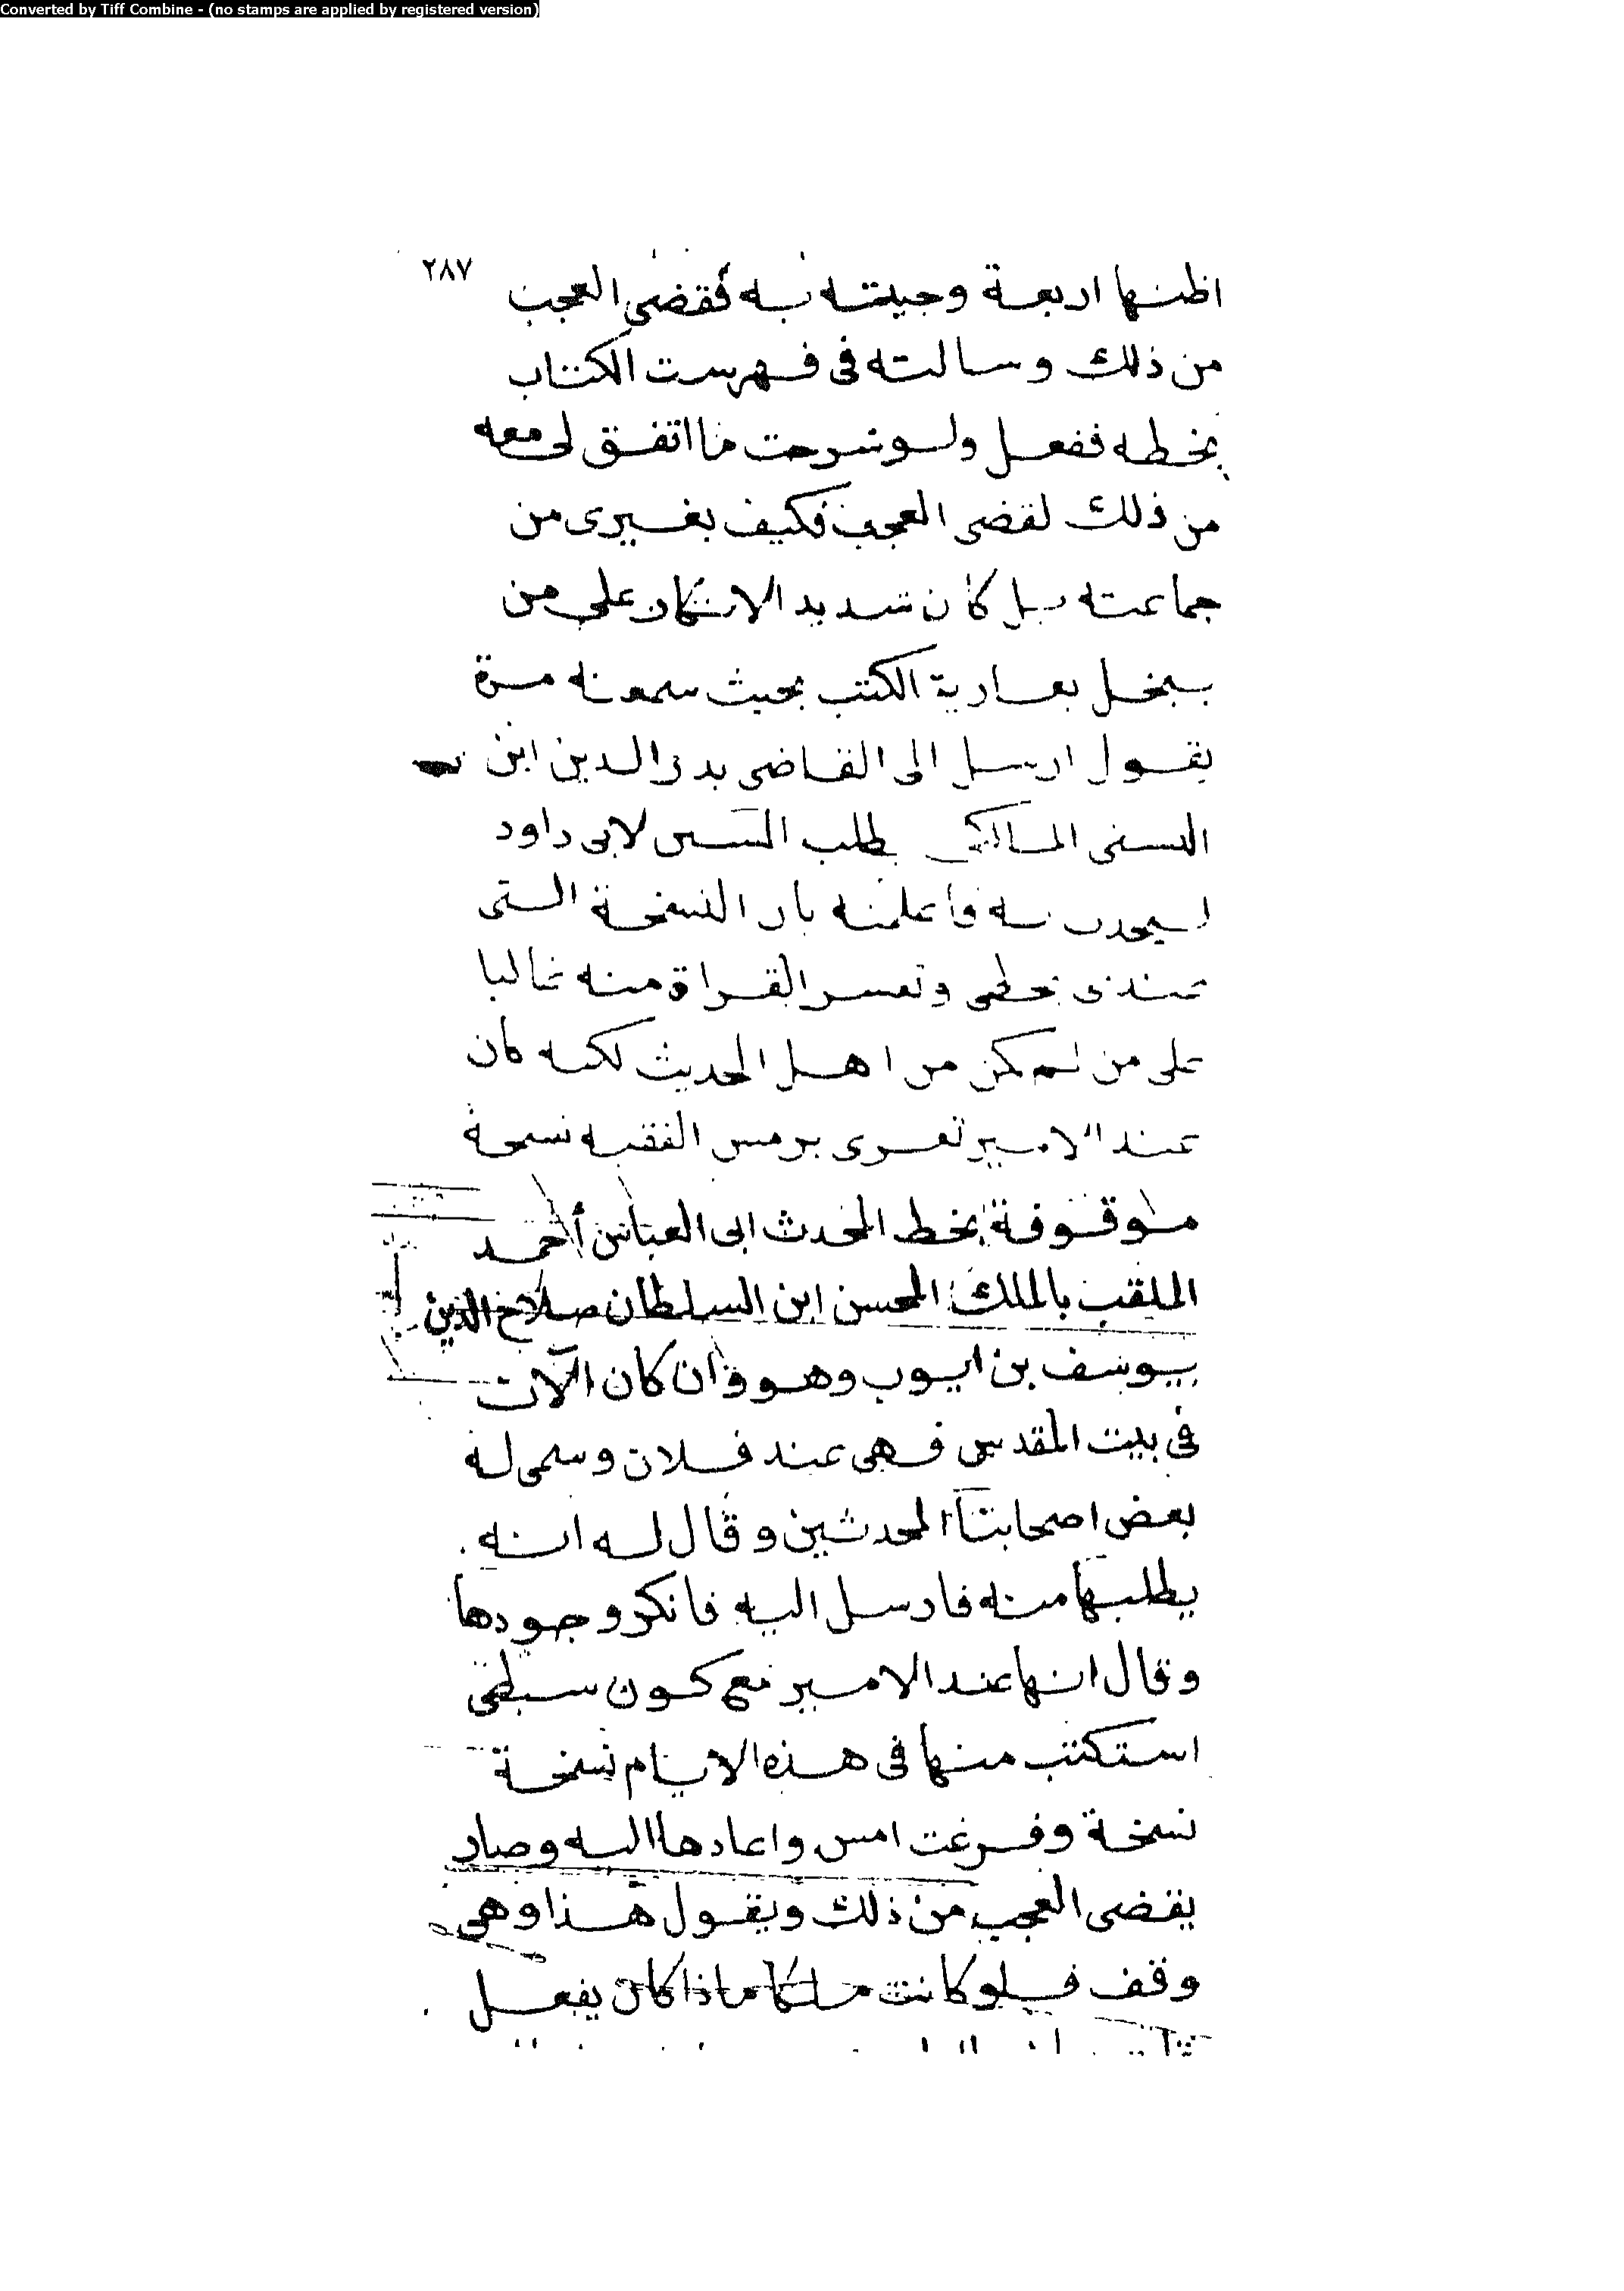 Converted by Tiff Combine - (no stamps are applied by registered version)
٢٨٧
اظنها اربعة وجيته به فقضى العجب
من ذلك وسالته فى فهرست الكتاب
بخطه ففعل ولو شرحت ما اتفق لى معه
من ذلك لقضى العجب فكيف بغيرى من
جماعته بل كان شديد الانكار على من
يبخل بعارية الكتب بحيث سمعته مرة
يقول ارسل الى القاضى بدر الدين ابن
التنسى المالكى يطلب السنن لابى داود
ليحدث به فاعلمته بان النسخة التى
عندى بخطى وتعسر القراة منه غالبا
على من لم يكن من اهل الحديث لكنه كان
عند الامير تغرى برمش الفقيه نسخة
موقوفة بخط المحدث ابى العباس أحمد
الملقب بالملك المحسن ابن السلطان صلاح الدين
يوسف بن ايوب وهو وان كان الآن
فى بيت المقدس فهى عند فلان وسمى له
بعض اصحابنا المحدثين وقال له انه
يطلبها منه فارسل اليه فانكر وجودها
وقال انها عند الامير مع كون سبطى
استكتب منها فى هذه الايام نسخة
نسخة وفرغت امس واعادها اليه وصار
يقضى العجب من ذلك ويقول هذا وهى
وقف فلو كانت ملكا ماذا كان يفعل